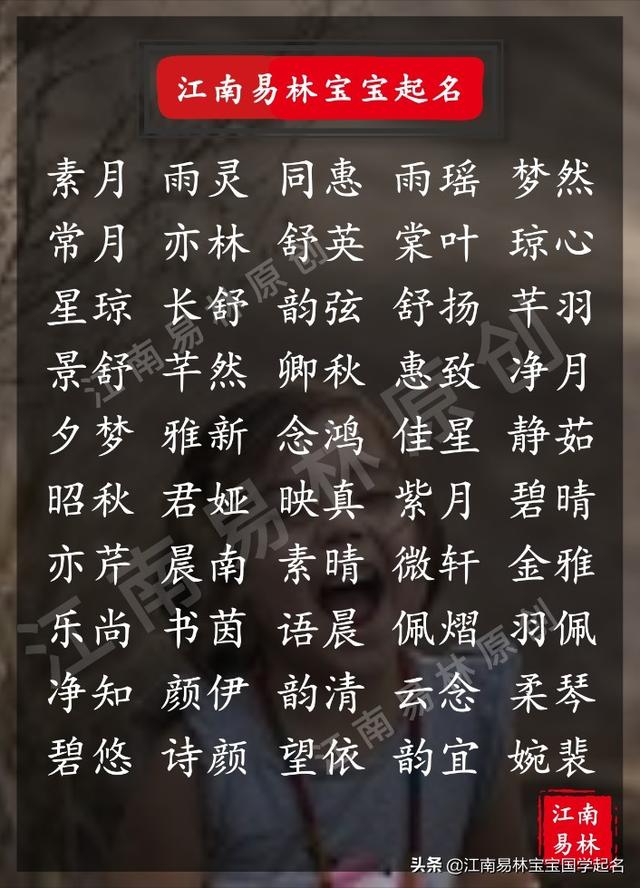 江南易林宝宝起名
素月 雨灵 同惠 雨瑶 梦然
常月 亦林 舒英 棠叶 琼心
星琼 长舒 韵弦 舒扬 芊羽
景舒 芊然 卿秋 惠致 净月
夕梦 雅新 念鸿 佳星 静茹
昭秋 君娅 映真 紫月 碧晴
亦芹 晨南 素晴 微轩 金雅
乐尚 书茵 语晨 佩熠 羽佩
净知 颜伊 韵清 云念 柔琴
碧悠 诗颜 望依 韵宜 婉裴
江南易林原创
江南易林原创
江南易林原创
江南
易林
头条 @江南易林宝宝国学起名